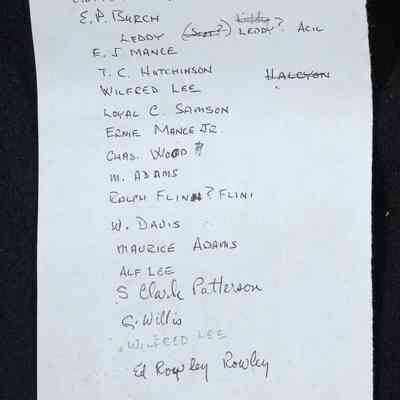 E. P. BURCH
LEDDY (SCOT?) LEDDY? ACIL
E. J MANCE
T. C. HUTCHINSON HALCYON
WILFRED LEE
LOYAL C. SAMSON
ERNIE MANCE JR.
CHAS. WOOD
M. ADAMS
RALPH FLINN? FLINI
W. DAVIS
MAURICE ADAMS
ALF LEE
S Clark Patterson
G. Willis
WILFRED LEE
Ed Rowley Rowley